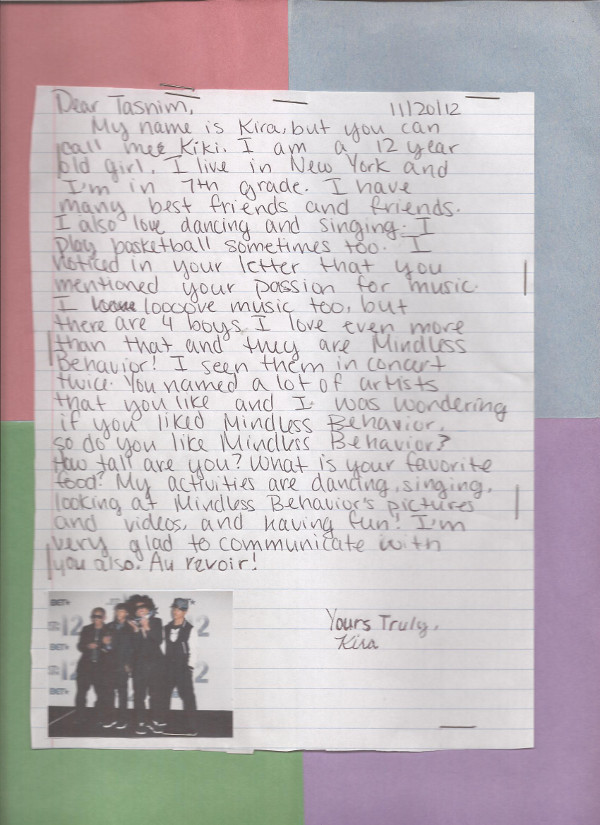 Dear Tasnim, 11/20/12
My name is Kira, but you can
call me Kiki. I am a 12 year
old girl. I live in New York and
I'm in 7th grade. I have
many best friends and friends.
I also love dancing and singing. I
play basketball sometimes too. I
noticed in your letter that you
mentioned your passion for music.
I loooove music too, but
there are 4 boys I love even more
than that and they are Mindless
Behavior! I seen them in concert
twice. You named a lot of artists
that you like and I was wondering
if you liked Mindless Behavior,
so do you like Mindless Behavior?
How tall are you? What is your favorite
food? My activities are dancing, singing,
looking at Mindless Behavior's pictures
and videos, and having fun! I'm
very glad to communicate with
you also. Au revoir!
Yours Truly,
Kira
BET
12
2
BET
BET